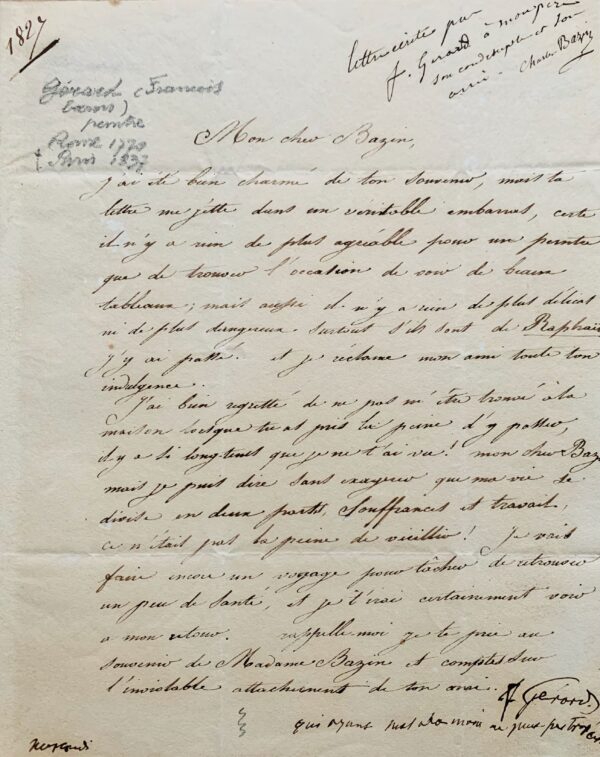 1827
lettre écrite par
f. Gerard à mon père
son condisciple et son
ami. Charles Bazin
Gérard (Francois
baron)
peintre
Rome 1770
† Paris 1837
Mon cher Bazin,
j'ai été bien charmé de ton souvenir, mais ta
lettre me jette dans un véritable embarras, certe
il n'y a rien de plus agréable pour un peintre
que de trouver l'occasion de voir de beaux
tableaux; mais aussi il n'y a rien de plus délicat
ni de plus dangereux surtout s'ils sont de Raphaël
j'y ai passé. et je réclame mon ami toute ton
indulgence.
J'ai bien regretté de ne pas m'être trouvé à la
maison lorsque tu as pris la peine d'y passer,
il y a si long-tems que je ne t'ai vu! mon cher Bazi
mais je puis dire sans exagerer que ma vie se
divise en deux parts, souffrances et travail,
ce n'était pas la peine de vieillir! Je vais
faire encore un voyage pour tâcher de retrouver
un peu de santé, et je t'irai certainement voir
a mon retour. rappelle-moi je te prie au
souvenir de Madame Bazin et comptes sur
l'inviolable attachement de ton ami.
F. Gérard
qui ayant mal à la main ne peut pas
mercredi